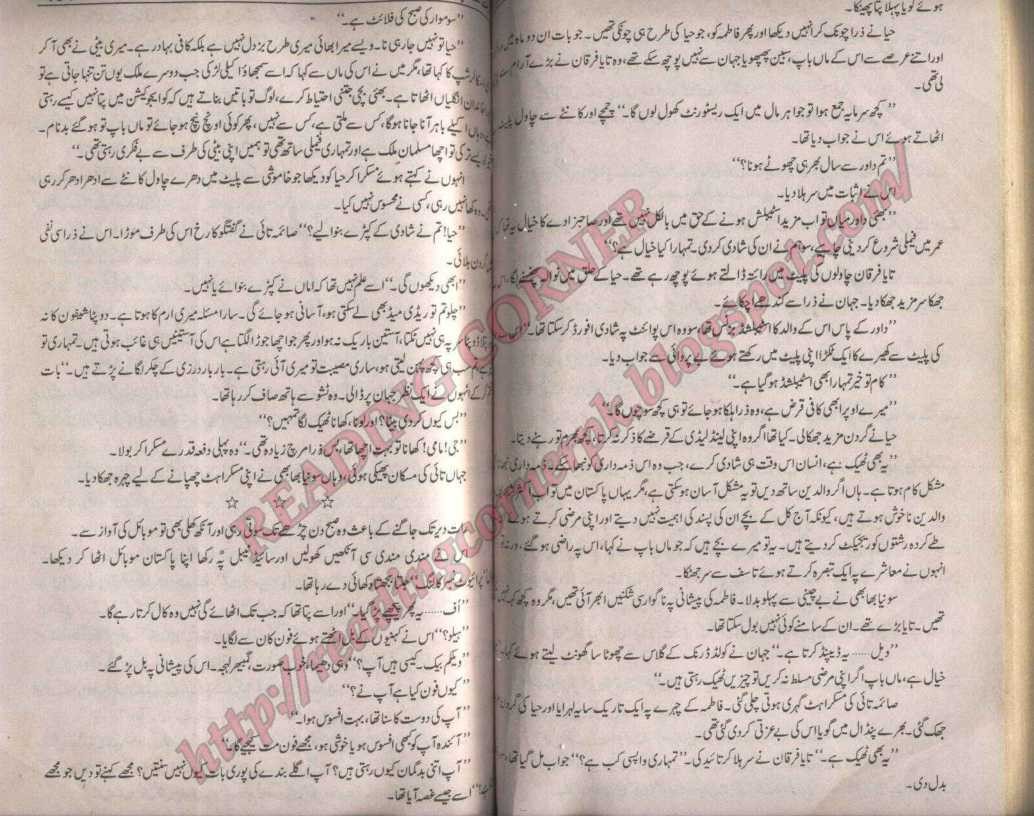 ہوئے گویا پہلا پتا پھینکا۔
حیا نے ذرا چونک کر انہیں دیکھا اور پھر فاطمہ کو، جو حیا کی طرح ہی چونکی تھیں۔ جو بات ان دو ماہ میں
اور اتنے عرصے سے اس کے ماں باپ، سبین پھپھو یا جہان سے نہیں پوچھ سکے تھے، وہ تایا فرقان نے بڑے آرام سے
لی تھی۔
"کچھ سرمایہ جمع ہوا تو جواہر مال میں ایک ریسٹورنٹ کھول لوں گا۔" چمچے اور کانٹے سے چاول پلیٹ
اٹھاتے ہوئے اس نے جواب دیا تھا۔
"تم داور سے سال بھر ہی چھوٹے ہونا؟"
اس نے اثبات میں سر ہلا دیا۔
"بھئی داور میاں تو اب مزید اسٹیبلش ہونے کے حق میں بالکل نہیں تھے اور صاحبزادے کا خیال یہ تھا کہ
عمر میں فیملی شروع کر دینی چاہیے، سو ہم نے ان کی شادی کر دی۔ تمہارا کیا خیال ہے؟"
تایا فرقان چاولوں کی پلیٹ میں رائتہ ڈالتے ہوئے پوچھ رہے تھے۔ حیا کے حلق میں نوالہ پھنسنے لگا، اس
جھکا سر مزید جھکا دیا۔ جہان نے ذرا سے کندھے اچکائے۔
"داور کے پاس اس کے والد کا اسٹیبلشڈ بزنس تھا، سو وہ اس پوائنٹ پہ شادی افورڈ کر سکتا تھا۔" اس
کی پلیٹ سے کھیرے کا ایک ٹکڑا اپنی پلیٹ میں رکھتے ہوئے بے پروائی سے جواب دیا۔
"کام تو خیر تمہارا بھی اسٹیبلشڈ ہو گیا ہے۔"
"میرے اوپر ابھی کافی قرض ہے، وہ ذرا ہلکا ہو جائے تو ہی کچھ سوچوں گا۔"
حیا نے گردن مزید جھکالی۔ کیا تھا اگر وہ اپنی لینڈ لیڈی کے قرضے کا ذکر نہ کرتا۔ کچھ بھرم تو رہنے دیتا۔
"یہ بھی ٹھیک ہے، انسان اس وقت ہی شادی کرے، جب وہ اس ذمہ داری کو نبھا سکے۔ ذمہ داری نبھانا
مشکل کام ہوتا ہے۔ ہاں اگر والدین ساتھ دیں تو یہ مشکل آسان ہو سکتی ہے، مگر یہاں پاکستان میں تو اب اکثر
والدین ناخوش ہوتے ہیں، کیونکہ آج کل کے بچے ان کی پسند کی اہمیت نہیں دیتے اور اپنی مرضی کرتے ہوئے
طے کردہ رشتوں کو ریجیکٹ کر دیتے ہیں۔ یہ تو میرے بچے ہیں کہ جو ماں باپ نے کہا، اس پہ راضی ہو گئے، ورنہ
انہوں نے معاشرے پہ ایک تبصرہ کرتے ہوئے تاسف سے سر جھٹکا۔
سونیا بھابھی نے بے چینی سے پہلو بدلا۔ فاطمہ کی پیشانی پہ ناگواری کی شکنیں ابھر آئی تھیں، مگر وہ کچھ کہہ نہیں
تھیں۔ تایا بڑے تھے۔ ان کے سامنے کوئی نہیں بول سکتا تھا۔
"ویل...... یہ ڈیپینڈ کرتا ہے۔" جہان نے کولڈ ڈرنک کے گلاس سے چھوٹا سا گھونٹ لیتے ہوئے کہا۔
خیال ہے، ماں باپ اگر اپنی مرضی مسلط نہ کریں تو چیزیں ٹھیک رہتی ہیں۔"
صائمہ تائی کی مسکراہٹ گہری ہوتی چلی گئی۔ فاطمہ کے چہرے پہ ایک تاریک سایہ لہرایا اور حیا کی گردن
جھک گئی۔ بھرے پنڈال میں گویا اس کی بے عزتی کر دی گئی تھی۔
"یہ بھی ٹھیک ہے۔" تایا فرقان نے سر ہلا کر تائید کی۔ "تمہاری واپسی کب ہے؟" جواب مل گیا تھا،
بدل دی۔
"سوموار کی صبح کی فلائٹ ہے۔"
"حیا تو نہیں جا رہی نا۔ ویسے میرا بھائی میری طرح بزدل نہیں ہے بلکہ کافی بہادر ہے۔ میری بیٹی نے بھی آ کر
اسکالرشپ کا کہا تھا، مگر میں نے اس کی ماں سے کہا کہ اسے سمجھاؤ اکیلی لڑکی جب دوسرے ملک یوں تن تنہا جاتی ہے تو
خاندان انگلیاں اٹھاتا ہے۔ بھئی بچی جتنی احتیاط کرے، لوگ تو باتیں بناتے ہیں کہ کو ایجوکیشن میں پتا نہیں کیسے رہتی
وہاں اکیلے باہر آنا جانا ہوگا، کس سے ملتی ہے، کس سے نہیں، پھر کوئی اونچ نیچ ہو جائے تو ماں باپ تو ہو گئے بدنام۔
ترکی تو اچھا مسلمان ملک ہے اور تمہاری فیملی ساتھ تھی تو ہمیں اپنی بیٹی کی طرف سے بے فکری رہتی تھی۔"
انہوں نے کہتے ہوئے مسکرا کر حیا کو دیکھا جو خاموشی سے پلیٹ میں دھرے چاول کانٹے سے ادھر ادھر کر رہی
وہ کھا نہیں رہی، کسی نے محسوس نہیں کیا۔
"حیا! تم نے شادی کے کپڑے بنوا لیے؟" صائمہ تائی نے گفتگو کا رخ اس کی طرف موڑا۔ اس نے ذرا سی نفی
گردن ہلائی۔
"ابھی دیکھوں گی۔" اسے علم نہیں تھا کہ اماں نے کپڑے بنوائے یا نہیں۔
"چلو تم تو ریڈی میڈ بھی لے سکتی ہو، آسانی ہو جائے گی۔ سارا مسئلہ میری ارم کا ہوتا ہے۔ دوپٹا شیفون کا نہ
دوپٹا سر پہ ہی نہیں ٹکتا، آستین باریک نہ ہو اور پھر جو اچھا جوڑا لگتا ہے اس کی آستینیں ہی غائب ہوتی ہیں۔ تمہاری تو
سب ہی کچھ پہن لیتی ہو، ساری مصیبت تو میری آئی رہتی ہے۔ بار بار درزی کے چکر لگانے پڑتے ہیں۔" بات
کر کے انہوں نے ایک نظر جہان پر ڈالی۔ وہ نشو سے ہاتھ صاف کر رہا تھا۔
"بس کیوں کر دی بیٹا! اور لو نا، کھانا ٹھیک لگا تمہیں؟"
"جی! مامی! کھانا تو بہت اچھا تھا، بس ذرا مرچ زیادہ تھی۔" وہ پہلی دفعہ قدرے مسکرا کر بولا۔
جہاں تائی کی مسکان پھیکی ہوئی، وہاں سونیا بھابھی نے اپنی مسکراہٹ چھپانے کے لیے چہرہ جھکا دیا۔
☆ ☆ ☆
رات دیر تک جاگنے کے باعث وہ صبح دن چڑھے تک سوتی رہی اور آنکھ کھلی بھی تو موبائل کی آواز سے۔
نے مندی مندی سی آنکھیں کھولیں اور سائیڈ ٹیبل پہ رکھا اپنا پاکستان موبائل اٹھا کر دیکھا۔
"پرائیویٹ نمبر کالنگ" جلتا بجھتا دکھائی دے رہا تھا۔
"اُف...... یہ پھر پیچھے پڑ گیا۔" اور اسے پتا تھا کہ جب تک اٹھائے گی نہیں وہ کال کرتا رہے گا۔
"ہیلو؟" اس نے کہنیوں کے بل اٹھتے ہوئے فون کان سے لگایا۔
"ویلکم بیک۔ کیسی ہیں آپ؟" وہی دھیما، خوب صورت، گمبھیر لہجہ۔ اس کی پیشانی پہ بل پڑ گئے۔
"کیوں فون کیا ہے آپ نے؟"
"آپ کی دوست کا سنا تھا، بہت افسوس ہوا۔"
"آئندہ آپ کو کبھی افسوس ہو یا خوشی ہو، مجھے فون مت کیجیے گا۔"
"آپ اتنی بدگمان کیوں رہتی ہیں؟ آپ اگلے بندے کی پوری بات کیوں نہیں سنتیں؟ مجھے کہنے تو دیں جو مجھے
اسے جیسے غصہ آیا تھا۔
READING CORNER
http://readingcornerpk.blogspot.com/